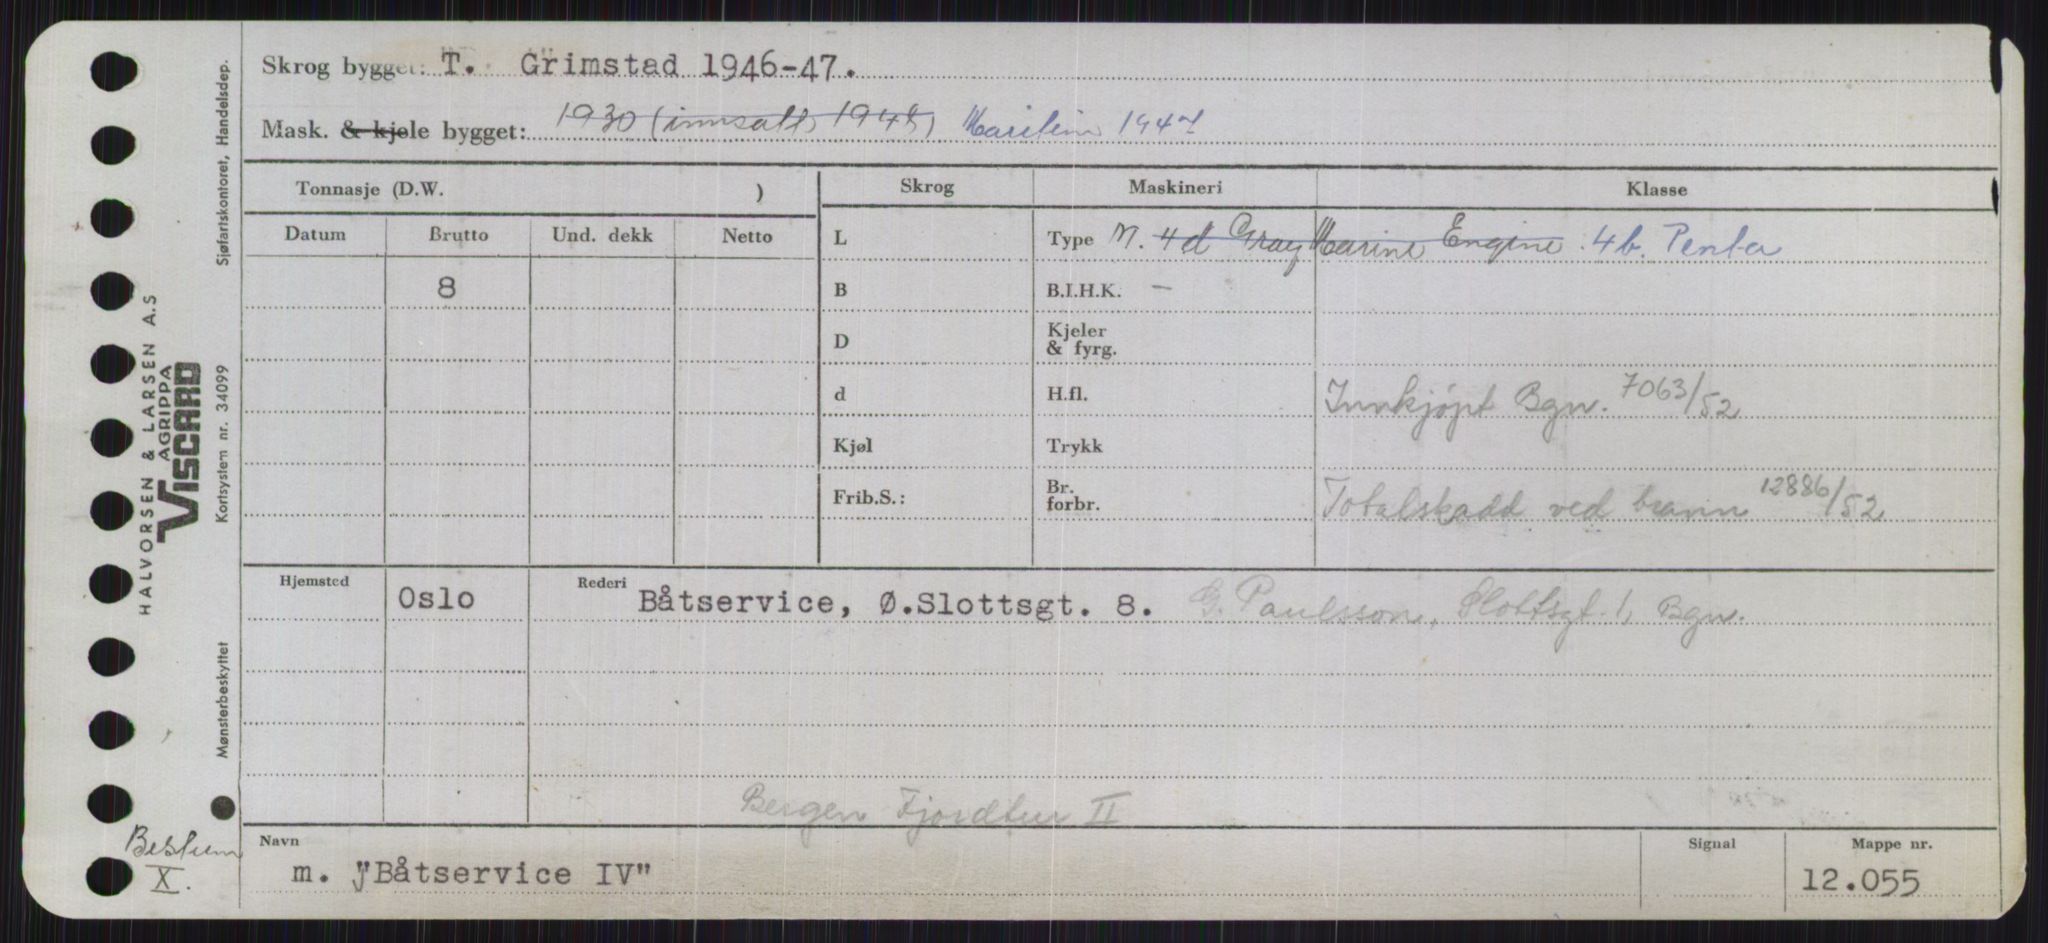 Skrog bygget: T. Grimstad 1946-47.
Mask. & kjele bygget: 1930 (innsatt 1948) Maritim 1947
Tonnasje (D.W. )
Skrog
Maskineri
Klasse
Datum
Brutto
Und. dekk
Netto
L
Type M. 4d Gray Marine Engine. 4b. Penta
8
B
B.I.H.K. –
D
Kjeler
& fyrg.
d
H.fl.
Innkjøpt Bgn. 7063/52
Kjøl
Trykk
Frib.S.:
Br.
forbr.
Totalskadd ved brann 12886/52
Hjemsted
Oslo
Rederi
Båtservice, Ø.Slottsgt. 8. G. Paulsson, Slottsgt. 1, Bgn.
Bergen Fjordtur II
Navn
m. "Båtservice IV"
Signal
Mappe nr.
12.055
Bestum
X.
HALVORSEN & LARSEN A.S
AGRIPPA
VISCARD
Sjøfartskontoret, Handelsdep.
Kortsystem nr. 34099
Mønsterbeskyttet